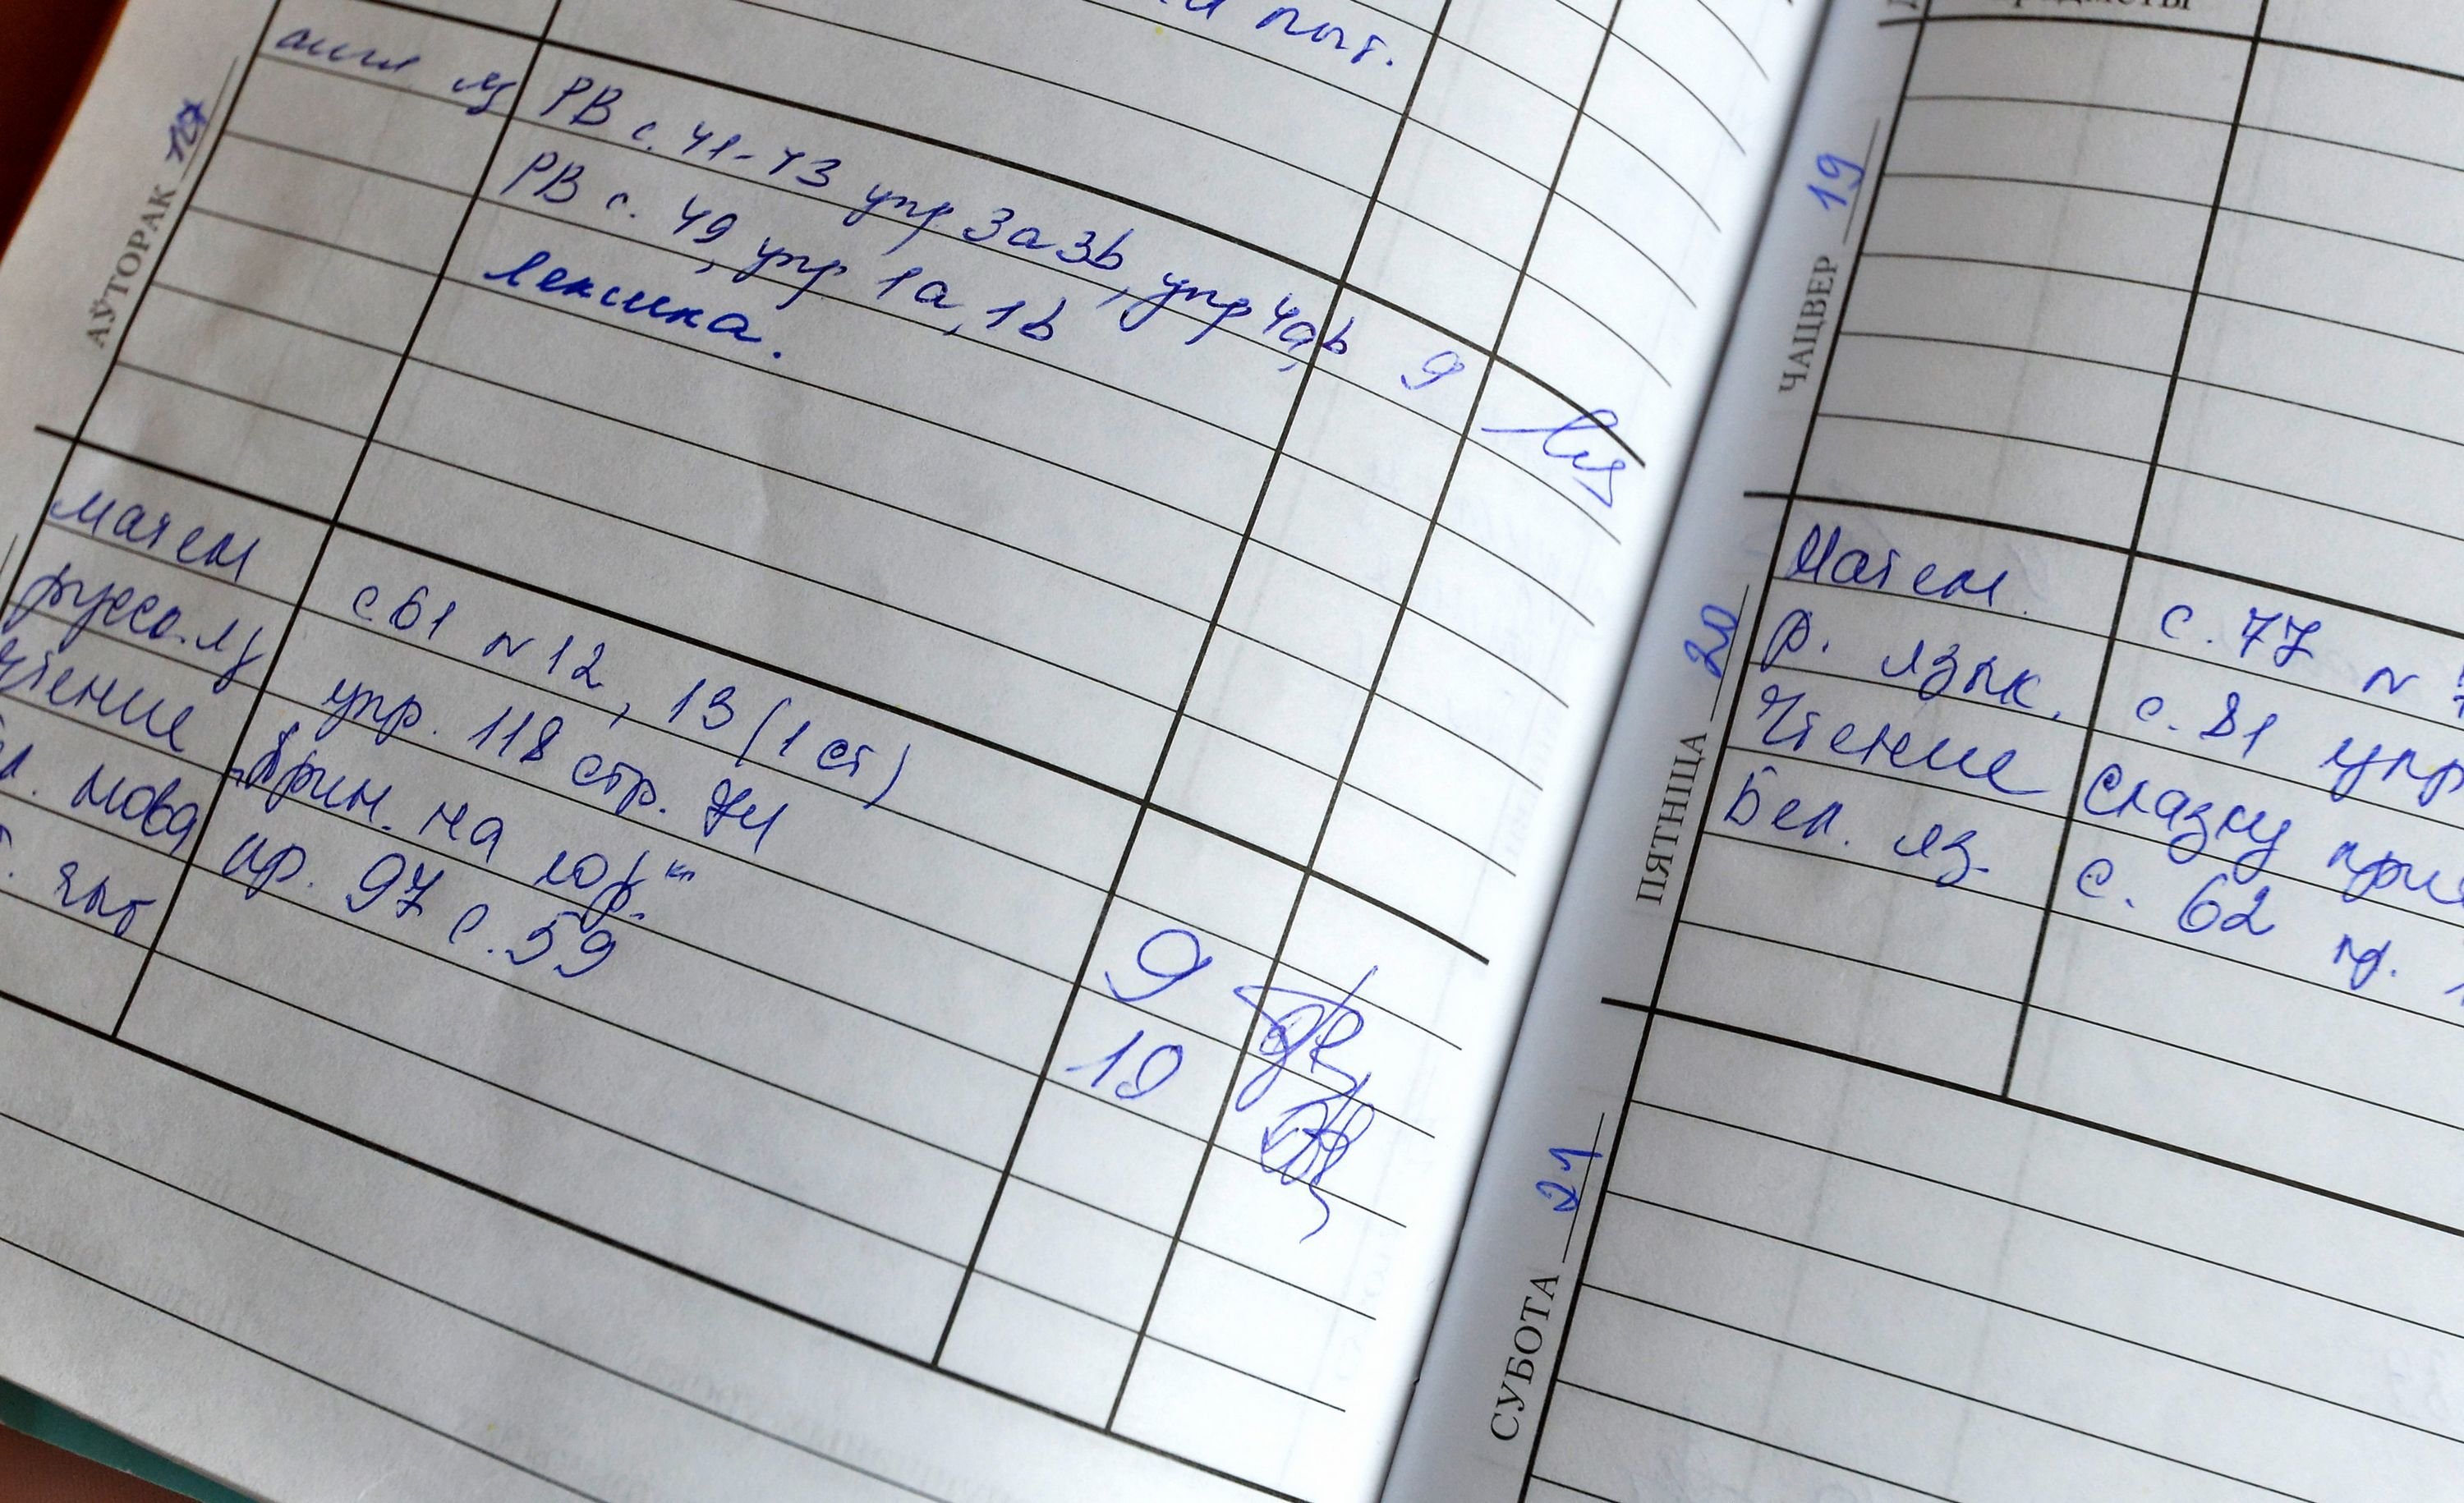 пыт.
АЎТОРАК
англ яз
РВ с. 41-43 упр 3а3b, упр 4а,b 9
РВ с. 49, упр 1а, 1b
лексика.
матем с 61 n 12, 13 (1 ст)
русс. яз упр. 118 стр. 74
чтение „Прин. на гор."
мова пр. 97 с. 59
9
10
ЧАЦВЕР 19
ПЯТНІЦА 20
Матем. с. 77 n
Р. язык. с. 81 упр
Чтение Сказку
Бел. яз. с. 62
СУБОТА 21